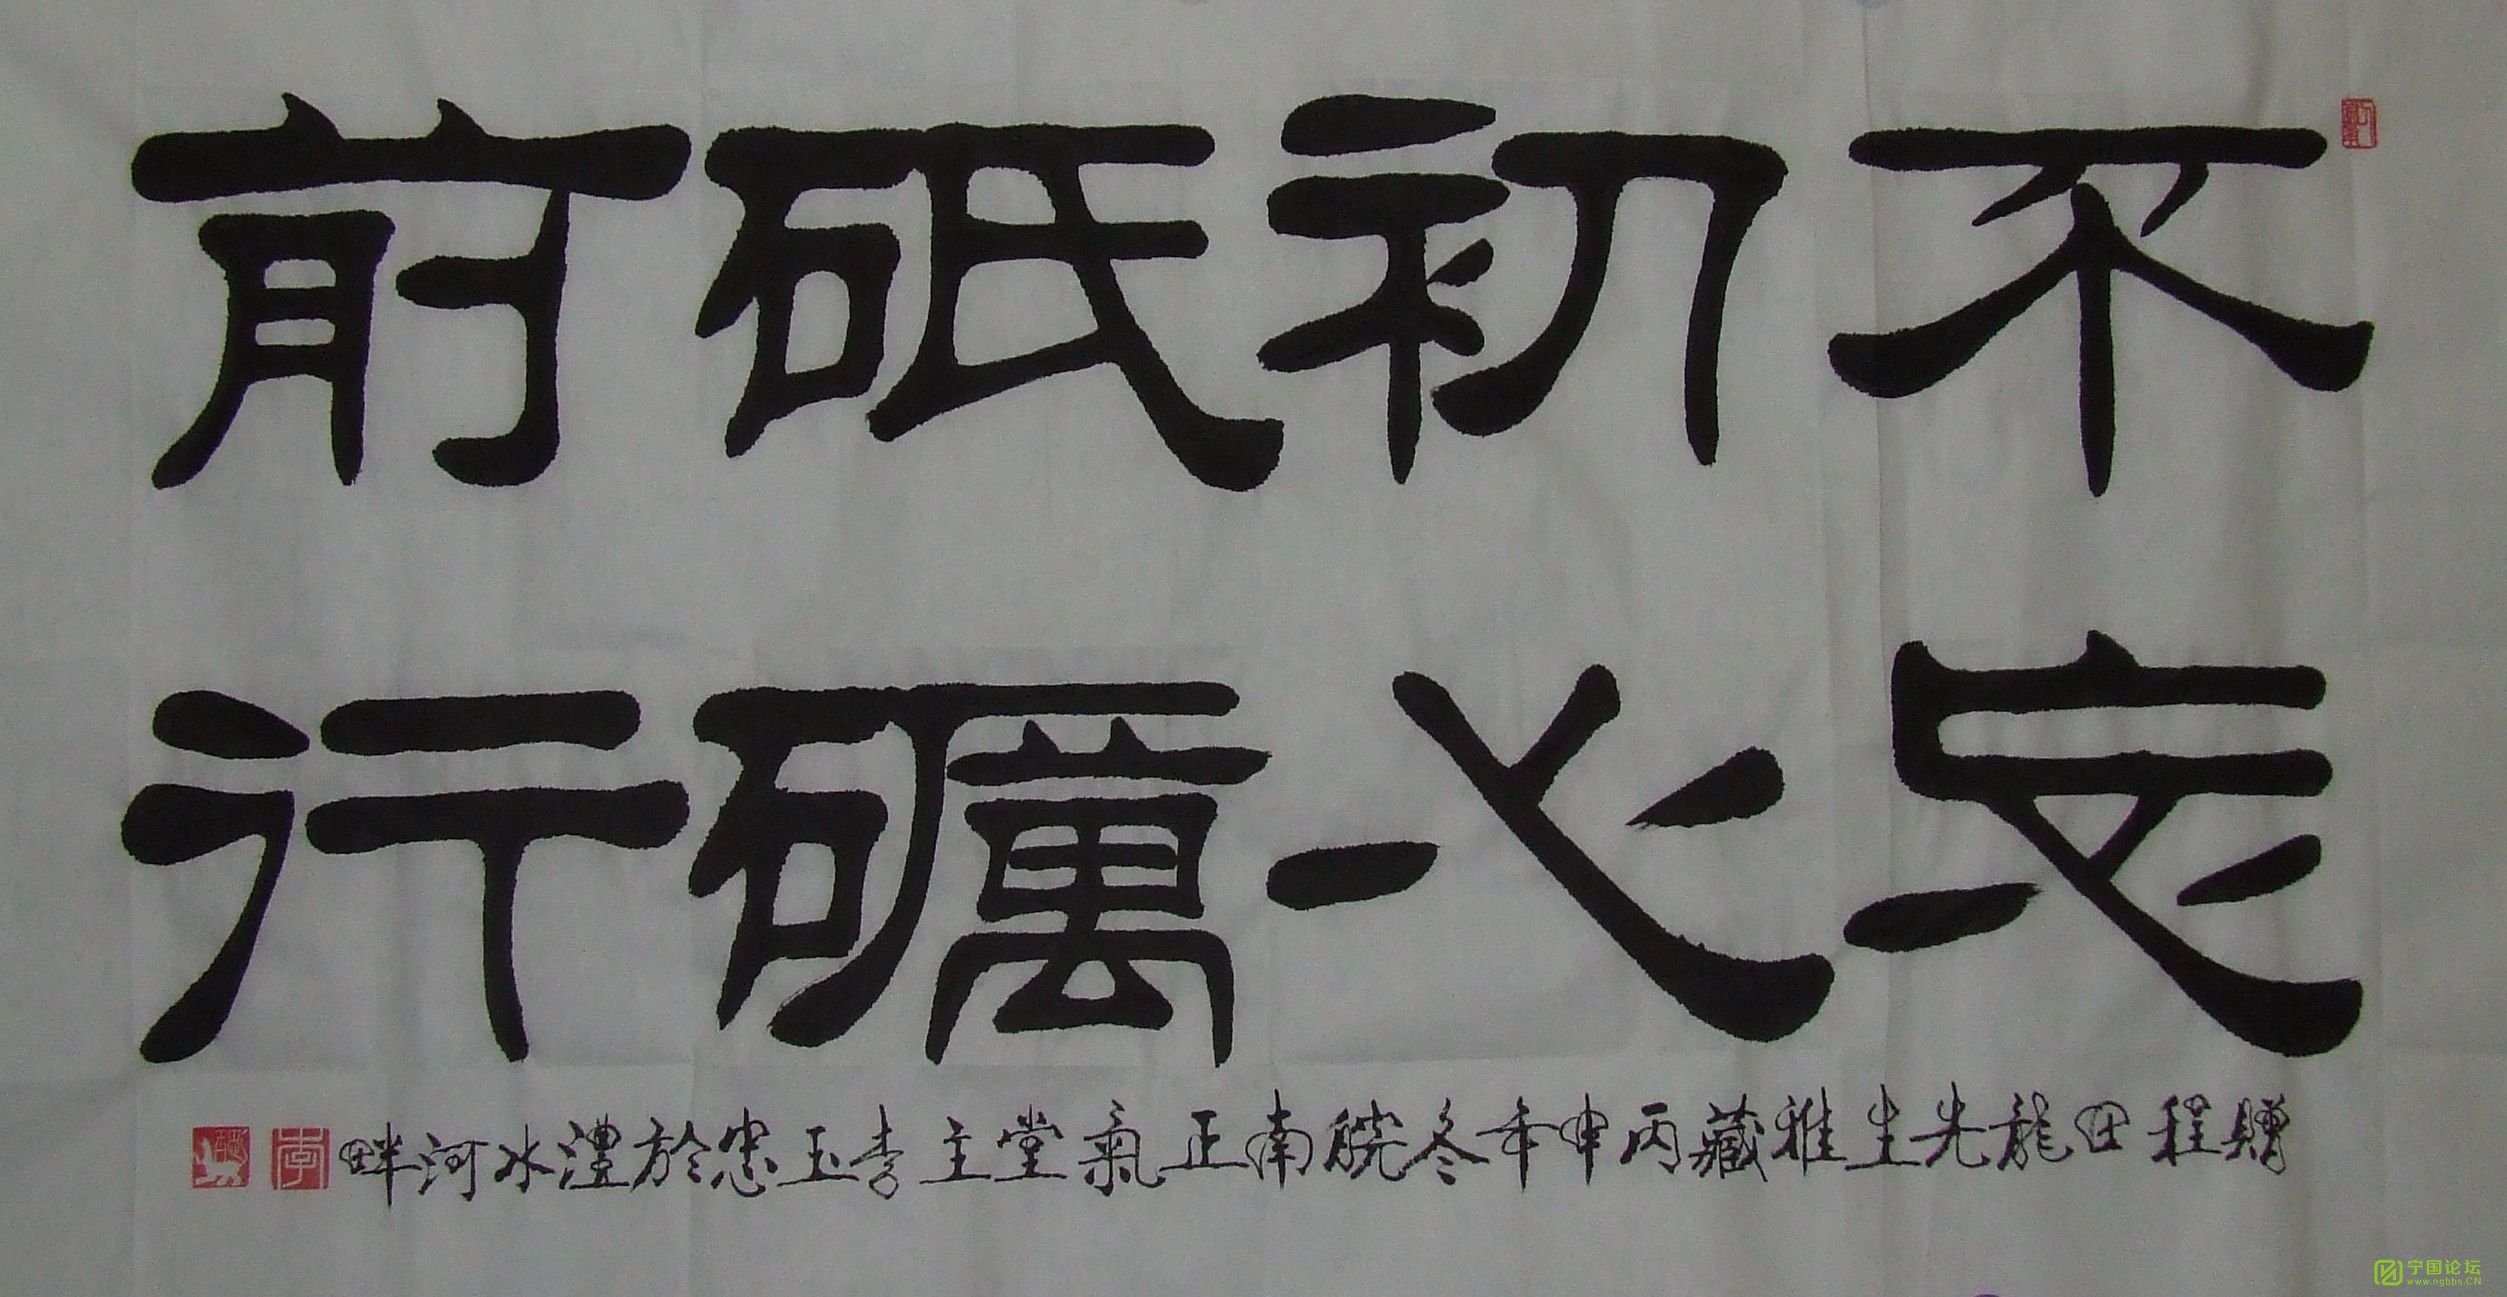 不忘
初心
砥礪
前行
贈程田龍先生雅藏丙申年冬皖南正氣堂主李玉忠於澧水河畔
宁国论坛
www.ngbbs.CN